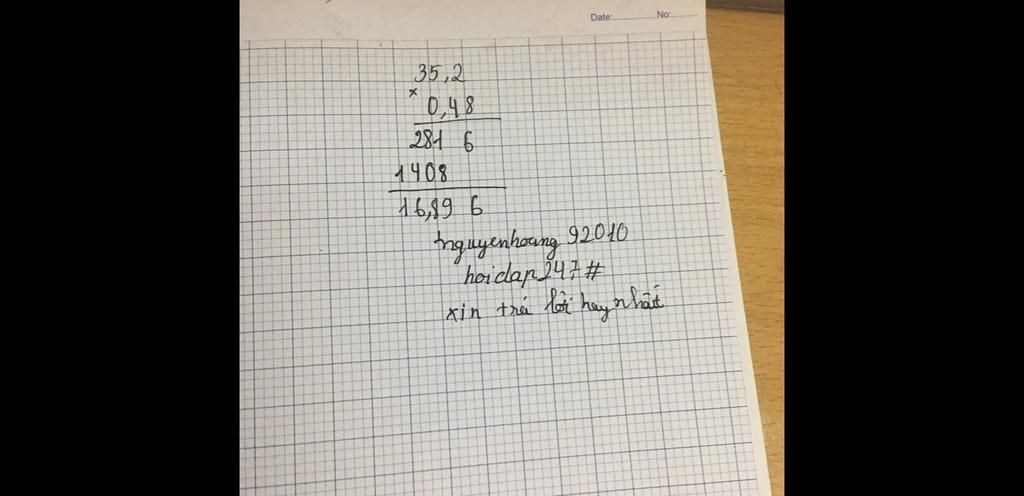 Date: No:
35,2
×
0,48
281 6
1408
16,89 6
nguyenhoang 92010
hoidap247#
xin trả lời hay nhất